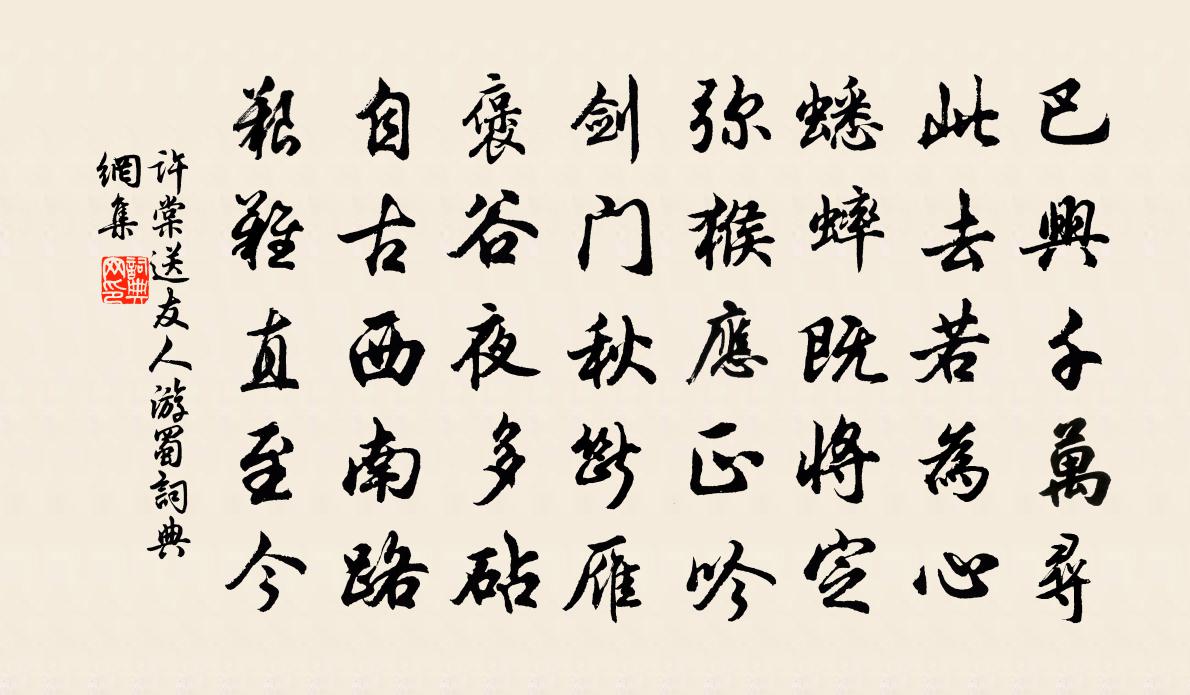 巴興千萬尋
此去若為心
蟋蟀既將定
弥猴應正吟
剑门秋斷雁
褒谷夜多砧
自古西南路
艱難直至今
許棠送友人游蜀詞典
網集
詞典
网印